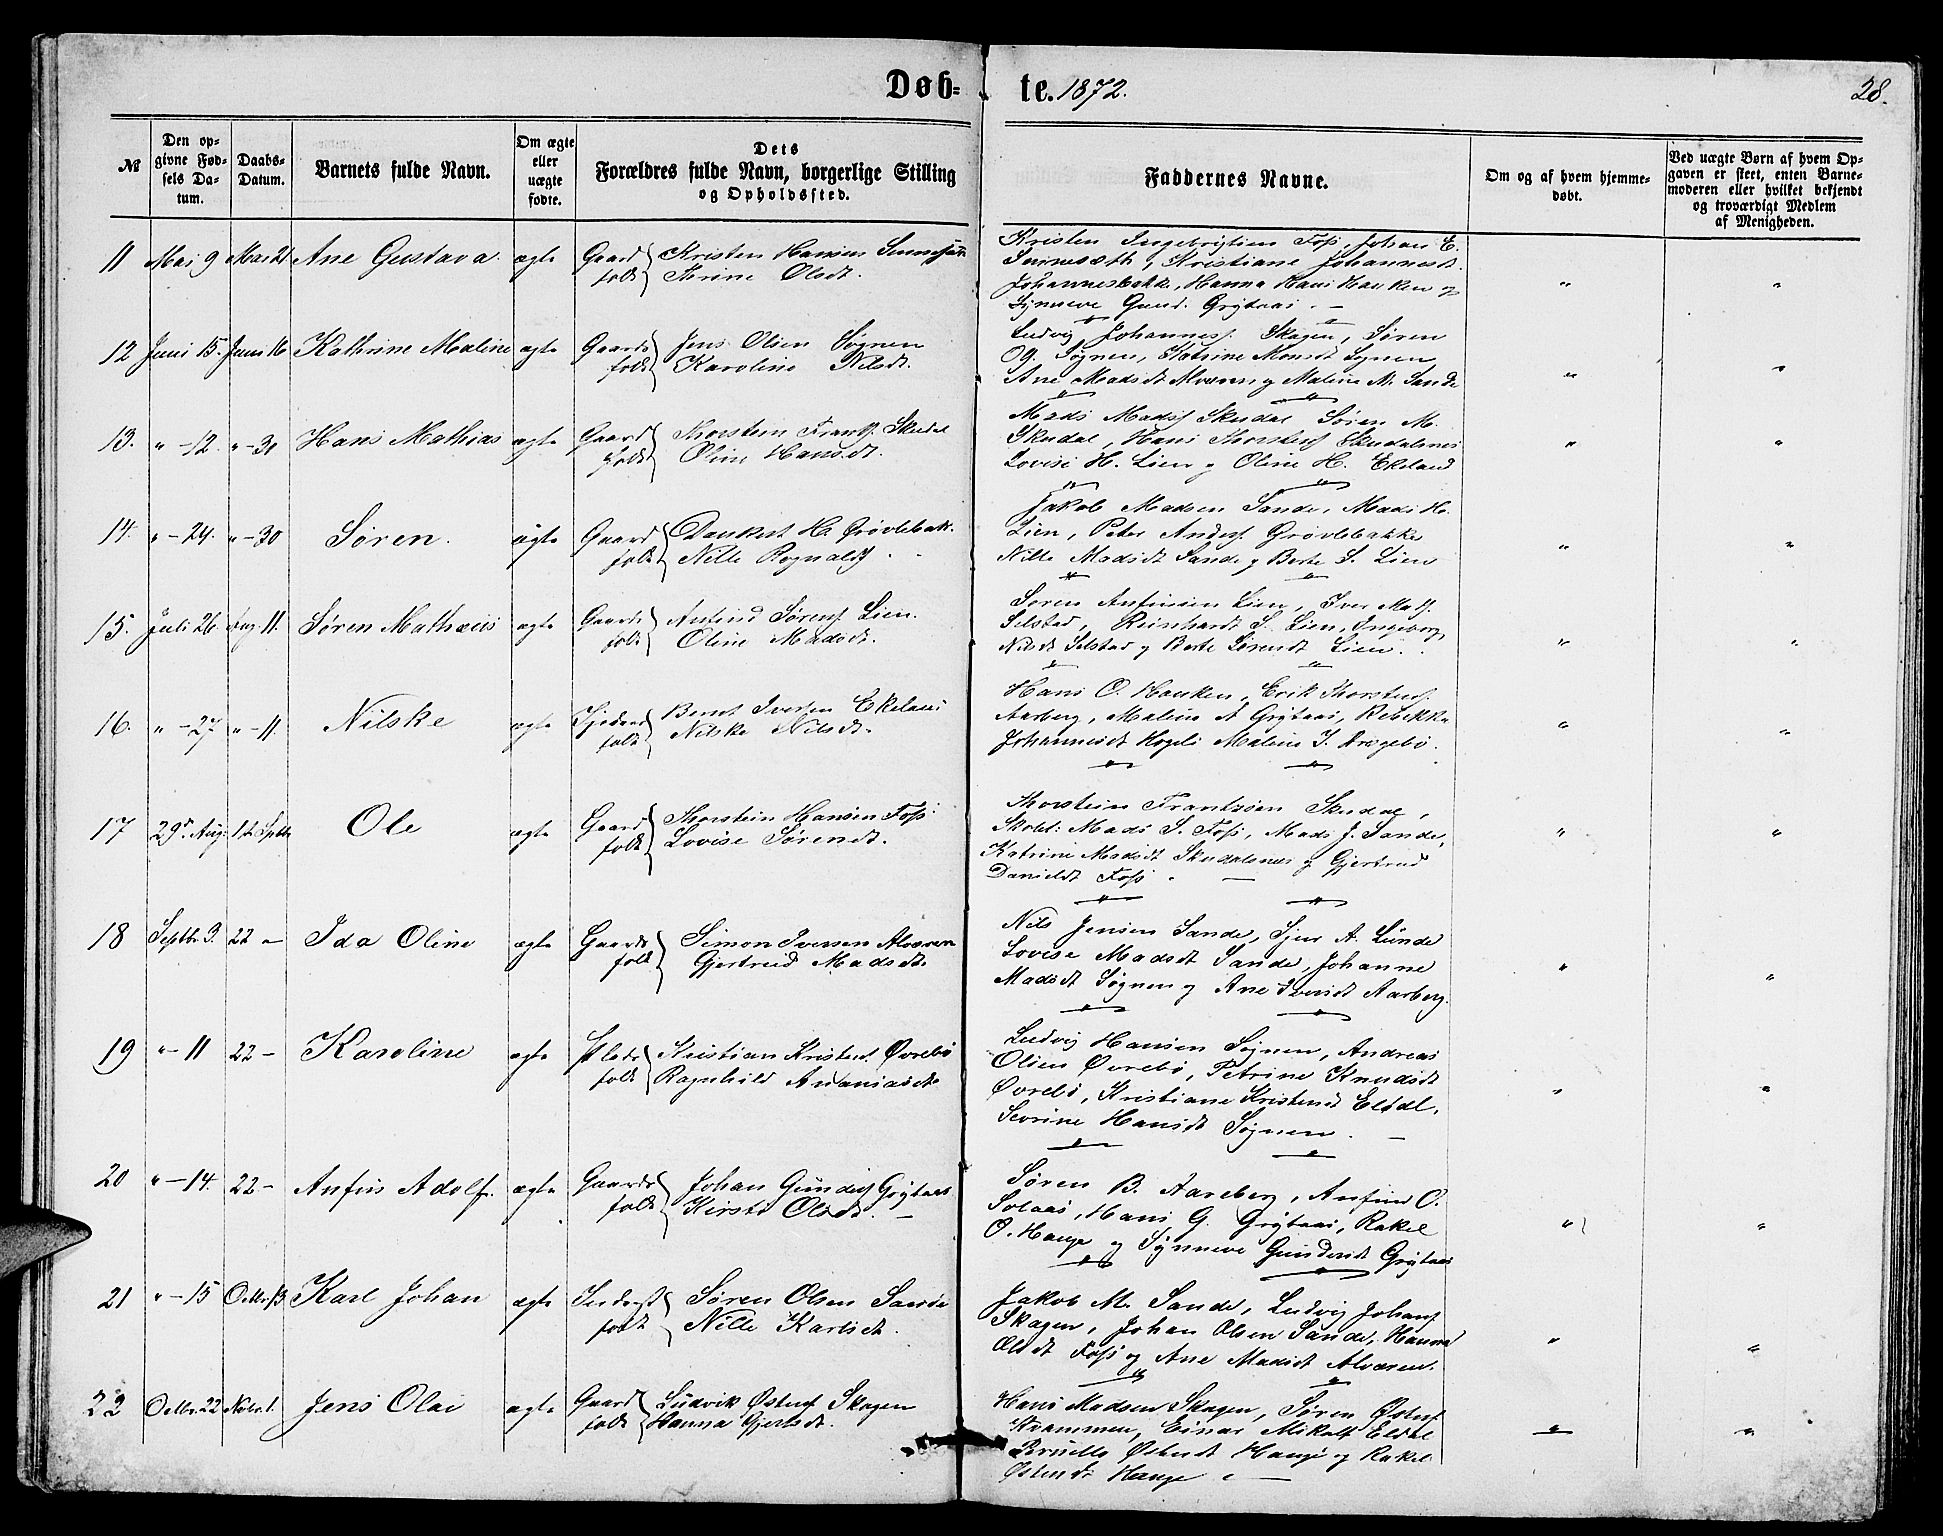 Døb-te. 1872. 28.
№
Den opgivne Fødsels Datum.
Daabs-Datum.
Barnets fulde Navn.
Om ægte eller uægte fødte.
Dets Forældres fulde Navn, borgerlige Stilling og Opholdssted.
Faddernes Navne.
Om og af hvem hjemmedøbt.
Ved uægte Børn af hvem Opgaven er skeet, enten Barnemoderen eller hvilket bekjendt og troværdigt Medlem af Menigheden.
11 Mai 9 Mai 21 Ane Gustava ægte Gaard folk Kristen Hansen
Thrine Olsdt.
Kristen Ingebrigtsen Foss, Johan E.
Kristiane Johannesdt.
Johannesbakke, Hanna Hans Hauken og
Synneve Gund. Grytaas. " "
12 Juni 15. Juni 16 Kathrine Maline ægte Gaards folk Jens Olsen Sognen
Karoline Nilsdt.
Ludvig Johannes. Skagen, Søren
Og. Sognen, Katrine Monsdt Sognen
Ane Madsdt Alværen og Maline M. Sande " "
13. " -12. " -30 Hans Mathias ægte Gaard folk Thorstein Frants. Skudal
Oline Hansdt.
Mads Mads. Skudal Søren M.
Skudal, Hans Thorstens. Skudalsnes
Lovise H. Lien og Oline H. Ekeland " "
14. " -24. " -30 Søren. ægte Gaard folk Dankert H. Grøvlebak.
Nille Rognalds
Jakob Madsen Sande, Mads H.
Lien, Peter Anders. Grøvlebakke
Nille Madsdt Sande og Berte S. Lien " "
15. Juli 26. Aug. 11. Søren Mathæus ægte Gaards folk Anfind Sørens. Lien.
Oline Madsdt.
Søren Anfinsen Lien, Iver Mats.
Selstad, Reinhardt S. Lien, Ingeborg
Nilsdt Selstad og Berte Sørensdt Lien. " "
16. " -27 " -11. Nilske ægte folk Bernt Iversen Ekeland
Nilske Nilsdt.
Hans O. Hauken, Erik Thorstens.
Aarberg, Maline A Grytaas, Rebekka
Johannesdt Maline J. " "
17 29de Aug. 1ste Septbr Ole ægte Gaard folk Thorstein Hansen Foss.
Lovise Sørensdt.
Thorstein Frantzsen Skudal,
Skolel: Mads S. Foss, Mads J. Sande,
Katrine Madsdt Skudalsnes og Gjertrud
Danielsdt Foss. " "
18 Septbr. 3. 22 - Ida Oline ægte Gaards folk Simon Iversen Alværen
Gjertrud Madsdt.
Nils Jensen Sande, Sjur A. Lunde
Lovise Madsdt Sande, Johanne
Madsdt Sognen og Ane Iversdt Aarberg. " "
19 " -11 22 - Karoline ægte Plads folk Kristian Kristens. Øvrebø
Ragnhild Ananiasdt.
Ludvig Hansen Sognen, Andreas
Olsen Øvrebø, Petrine Knudsdt
Øvrebø, Kristiane Kristensdt Eldal,
Sevrine Hansdt Sognen. " "
20 " -14. 22 - Anfin Adolf. ægte Gaards folk Johan Gunders. Grytaas.
Kirsti Olsdt.
Søren B. Aareberg, Anfind O.
Solaas, Hans G. Grytaas, Rakel
O. Hauge og Synneve Gundersdt Grytaas " "
21 " -15 Octbr. 13 Karl Johan ægte Inderst folk Søren Olsen Sande
Nille Karlsdt.
Jakob M. Sande, Ludvig Johans.
Skagen, Johan Olsen Sande, Hanna
Olsdt Foss og Ane Madsdt Alværen. " "
22 Octbr. 22 Novbr. 1. Jens Olai ægte Gaard folk Ludvik Østens. Skagen
Hanna Gjertsdt.
Hans Madsen Skagen, Søren Østens.
Einar Mikals. Eldal
Pernille Østensdt Hauge og Rakel
Østensdt Hauge " "